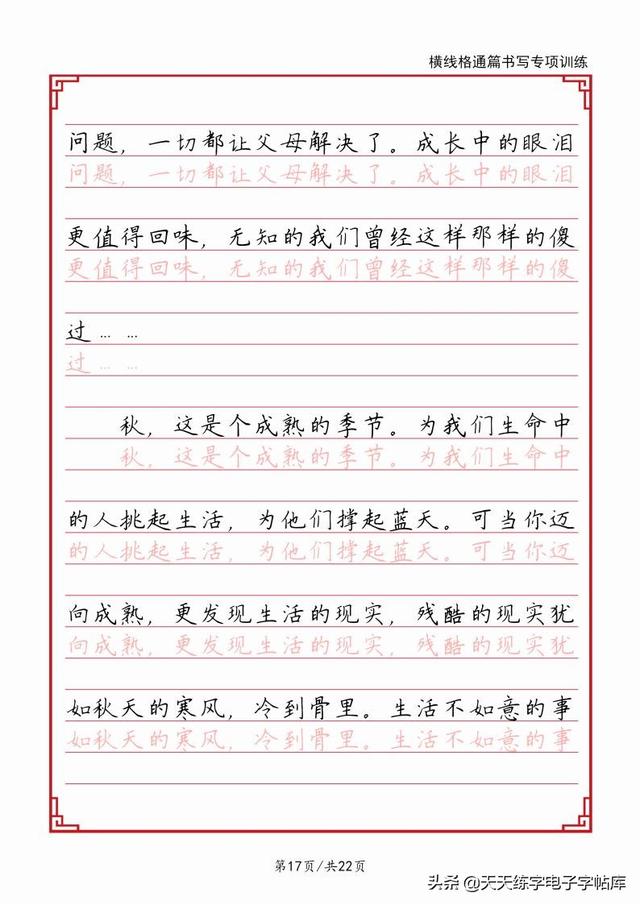 横线格通篇书写专项训练
问题，一切都让父母解决了。成长中的眼泪
问题，一切都让父母解决了。成长中的眼泪
更值得回味，无知的我们曾经这样那样的傻
更值得回味，无知的我们曾经这样那样的傻
过… …
过… …
秋，这是个成熟的季节。为我们生命中
秋，这是个成熟的季节。为我们生命中
的人挑起生活，为他们撑起蓝天。可当你迈
的人挑起生活，为他们撑起蓝天。可当你迈
向成熟，更发现生活的现实，残酷的现实犹
向成熟，更发现生活的现实，残酷的现实犹
如秋天的寒风，冷到骨里。生活不如意的事
如秋天的寒风，冷到骨里。生活不如意的事
第17页/共22页
头条 @天天练字电子字帖库